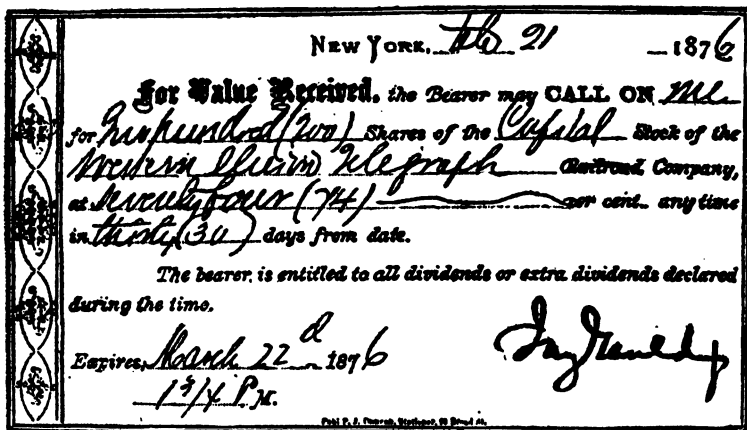 NEW YORK, Feb 21 1876
For Value Received, the Bearer may CALL ON me
for Two hundred (200) Shares of the Capital Stock of the
Western Union Telegraph Railroad Company,
at seventy four (74) per cent. any time
in thirty (30) days from date.
The bearer is entitled to all dividends or extra dividends declared
during the time.
Expires, March 22d 1876
1 3/4 P.M.
Jay Gould